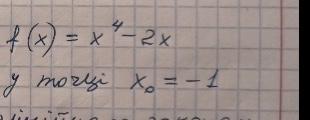 f(x) = x⁴ - 2x
у точці x₀ = -1